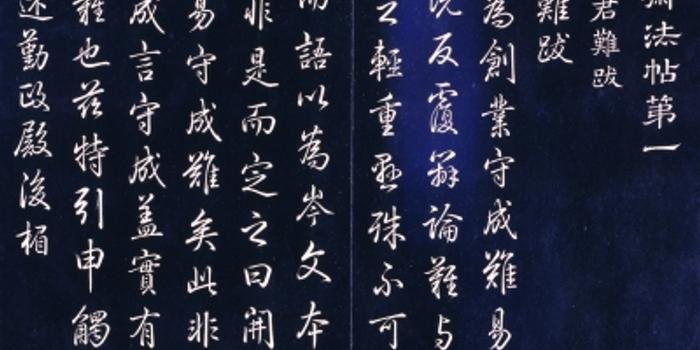 法帖第一
君難跋
難跋
為創業守成難易
反覆辯論難与
輕重懸殊不可
語以為岑文本
非是而定之曰開
易守成難矣此非
成言守成蓋實有
難也茲特引申觸
勤政殿後楣